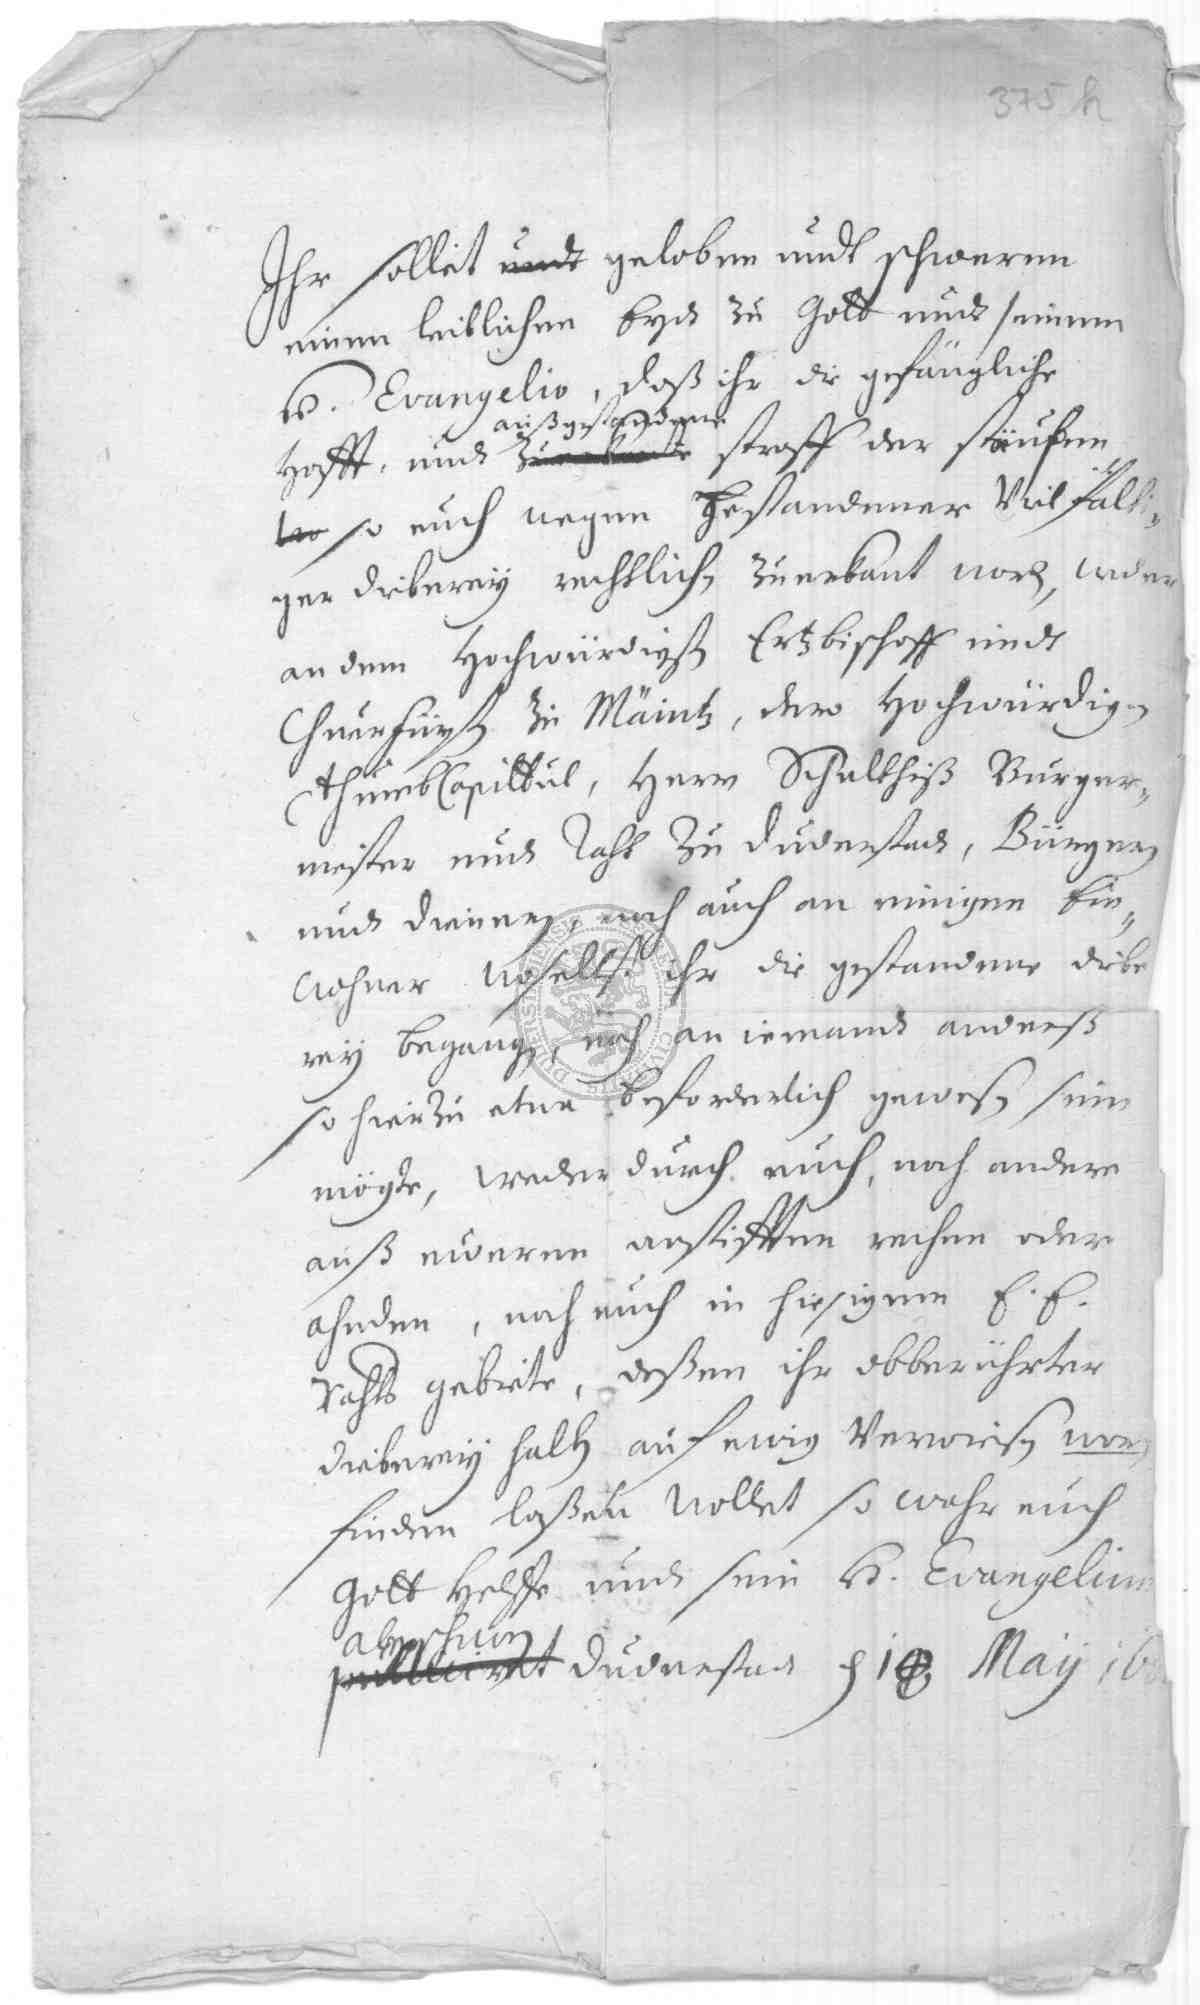 375 h
Ihr sollet undt geloben undt schweren
einen leiblichen Eyd zu Gott undt seinem
H. Evangelio, daß ihr die gefängliche
außgestandene
Hafft, und zuerkante straff der stäupen
so euch wegen gestandener Vielfälti„
ger dieberey rechtlich zuerkant word, weder
an dem Hochwürdigst Ertzbischoff undt
Churfürst zu Mäintz, dero Hochwürdig
ThumbCapittul, Herrn Schultheiß Burger„
meister und Raht zu Duderstad, Bürgern
und dienern, noch auch an einigen Ein„
wohner woselbst ihr die gestandene diebe
rey begang, noch an iemand anderß
so hierzu etwa beforderlich geweß sein
mögte, weder durch euch, noch andere
auß eweren anstifften rechen oder
ahnden, noch euch in hiesigem E. E.
Rahts gebiete, deßen ihr obberührter
dieberey halb auf ewig Verwiesen word
finden laßen wollet so wahr euch
Gott Helffe und sein H. Evangelium
Duderstad d 18 May 16